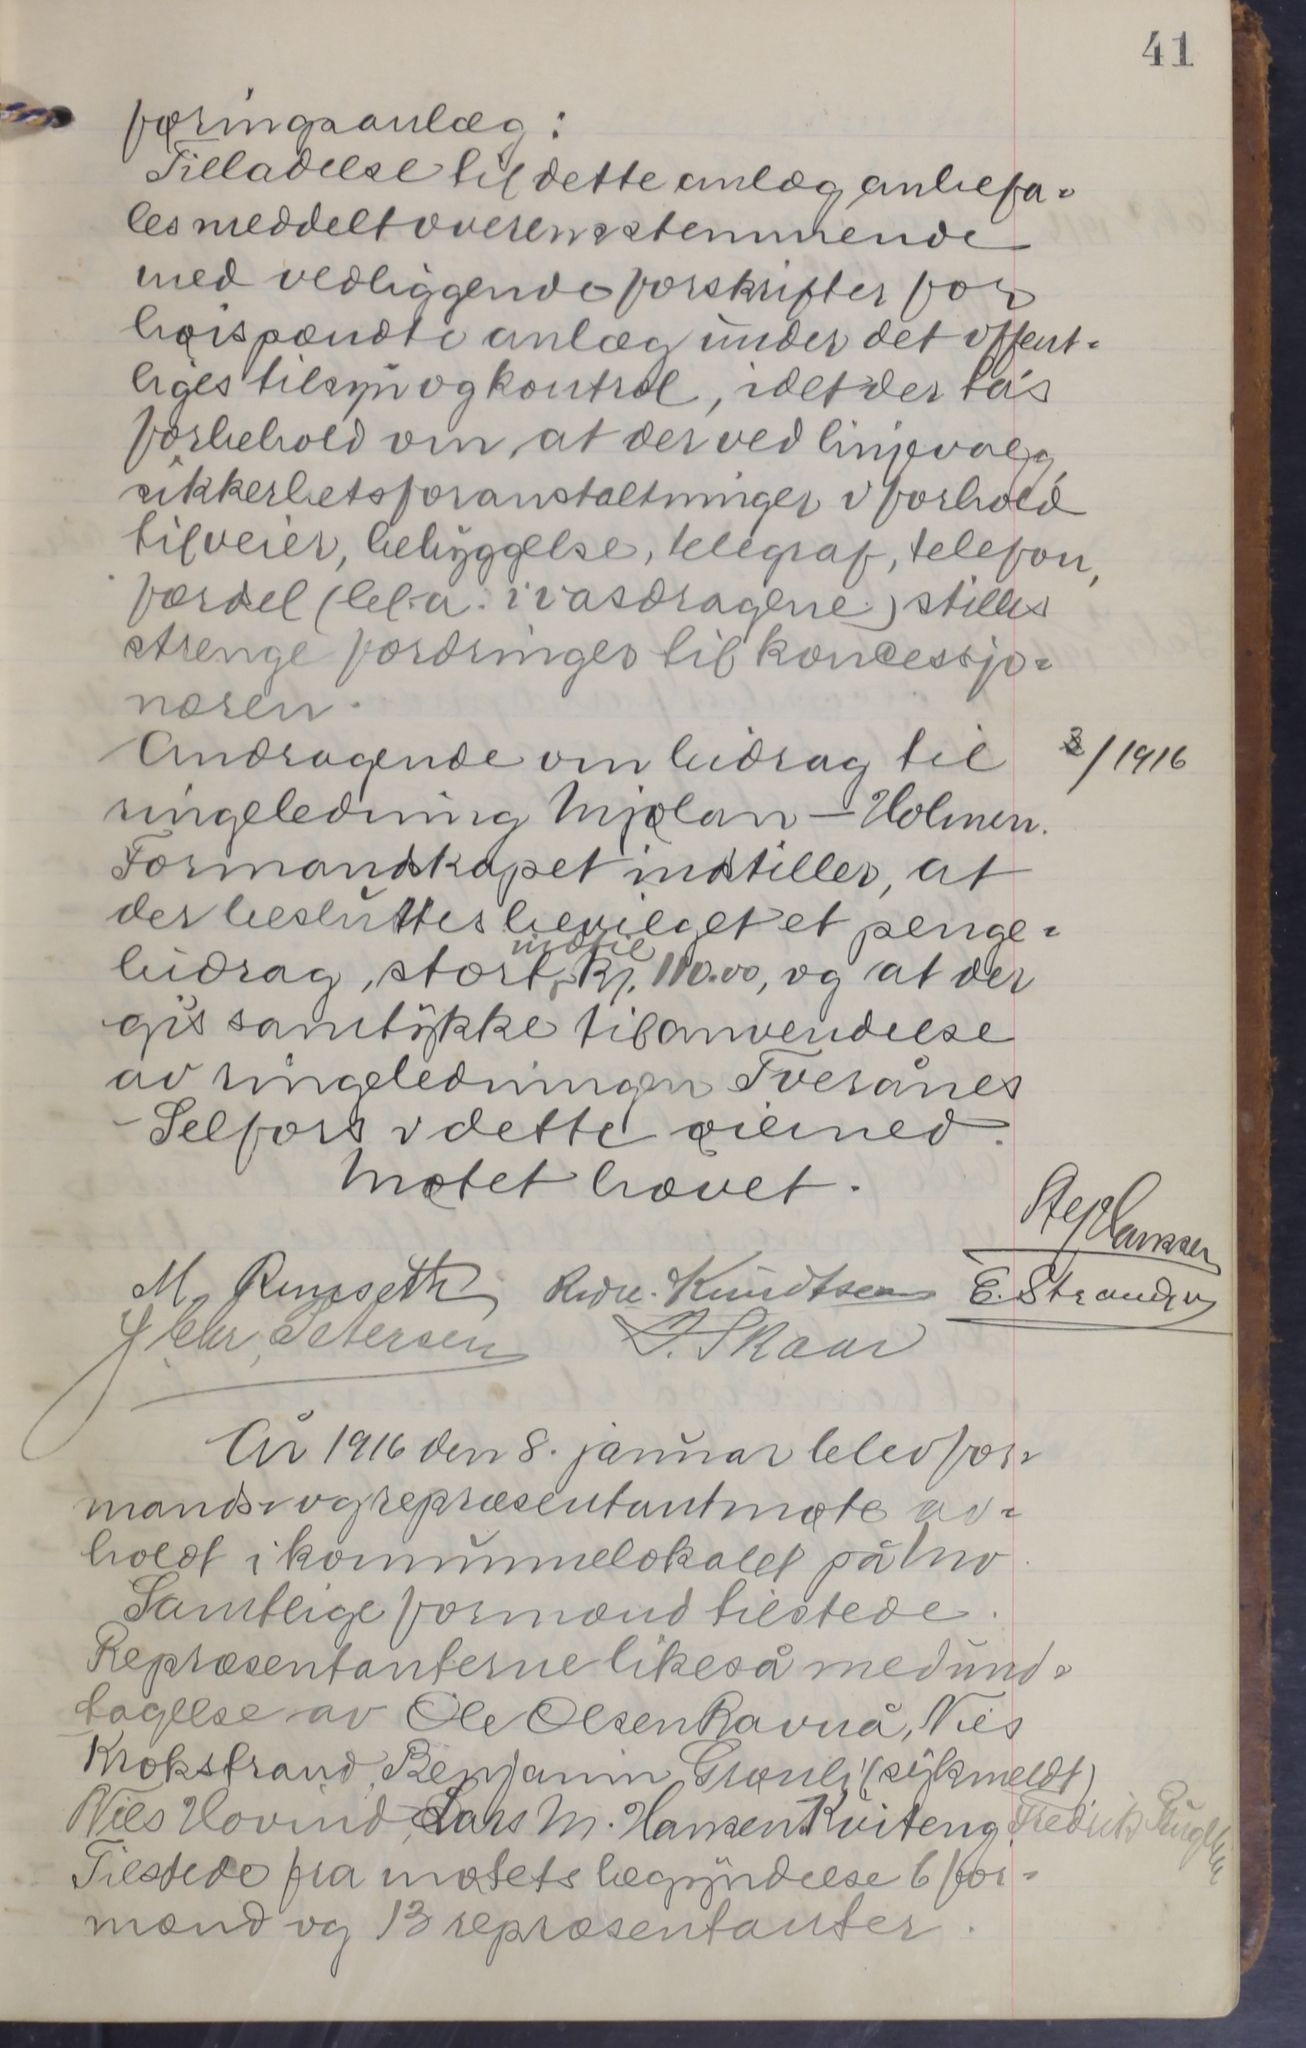 41
føringsanlæg:
Tilladelse til dette anlæg anbefa-
les meddelt overensstemmende
med vedliggende forskrifter for
høispændte anlæg under det offent-
liges tilsyn og kontrol, idet der tas
forbehold om, at der ved linjevalg,
sikkerhetsforanstaltninger i forhold
til veier, bebyggelse, telegraf, telefon,
færdsel (bl. a. i vasdragene) stilles
strenge fordringer til koncessjo-
næren.
Andragende om bidrag til 3/1916
ringeledning Mjølan - Holmen.
Formandskapet indstiller, at
der besluttes bevilget et penge-
bidrag, stort indtil kr. 110.00, og at der
gis samtykke til anvendelse
av ringeledningen Tverånes
- Selfors i dette øiemed.
Møtet hævet.
Steph Hanssen
M. Rumseth Redv. Knudtsen E. Strandvn
J. Chr. Petersen I. Skaar
År 1916 den 8. januar blev for-
mands- og repræsentantmøte av-
holdt i kommunelokalet på Mo.
Samtlige formænd tilstede.
Repræsentanterne likeså med und-
tagelse av Ole Olsen Ravnå, Nils
Krokstrand, Benjamin Grønli (sykmeldt)
Nils Hovind, Lars M. Hansen Kviteng, Fredrik
Tilstede fra møtets begyndelse 6 for-
mænd og 13 repræsentanter.